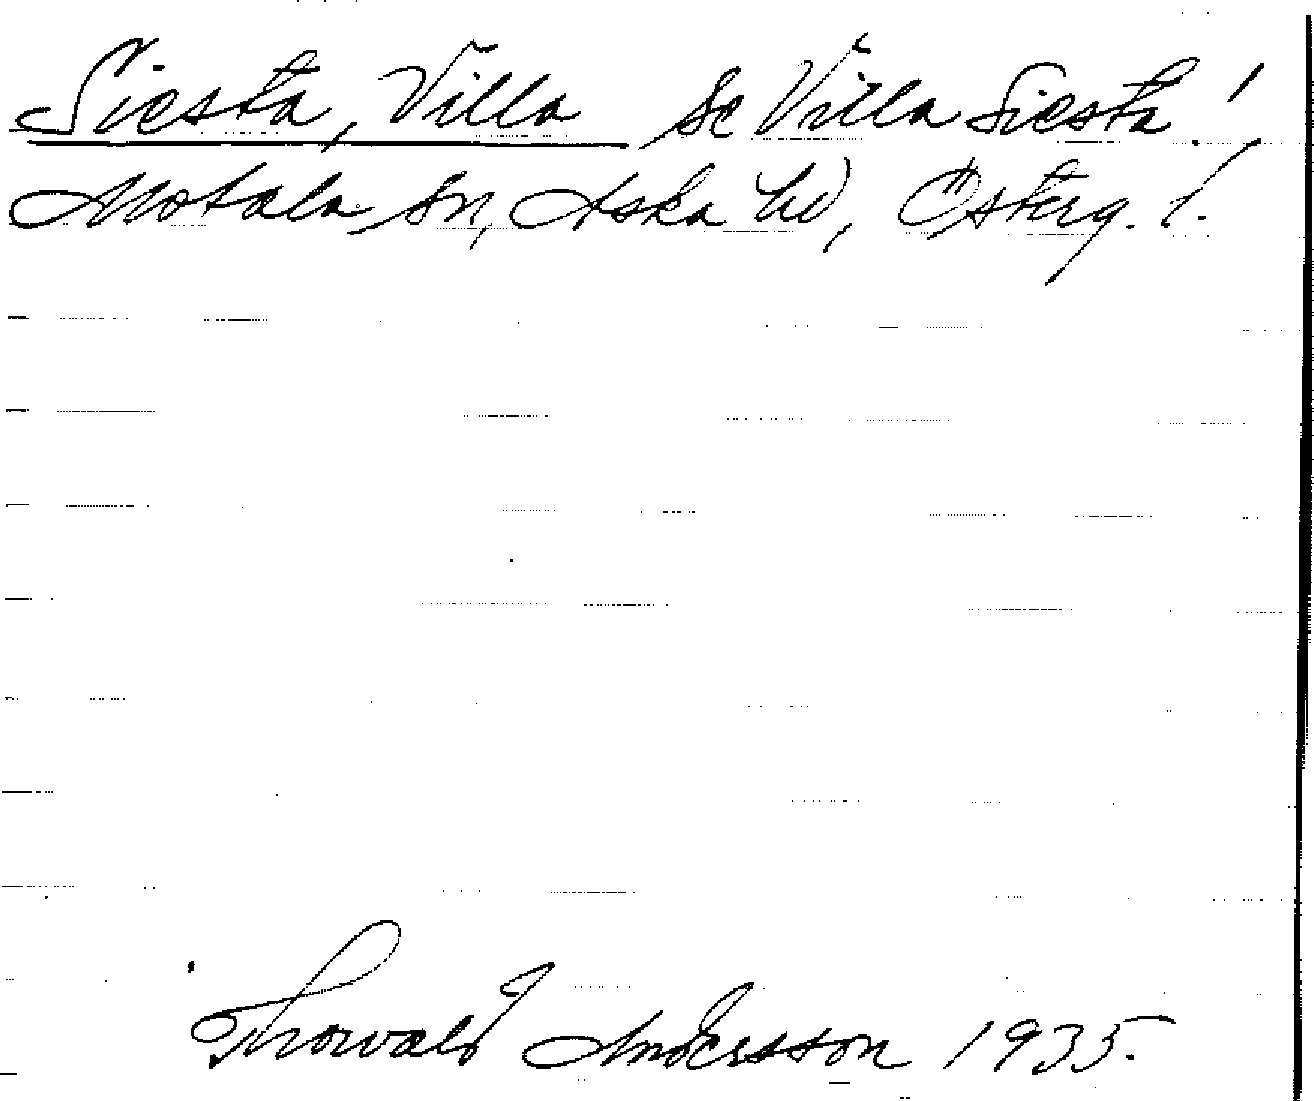 Siesta, Villa se Villa Siesta!
Motala sn, Aska hd, Österg. l.
Thorvald Andersson 1935.